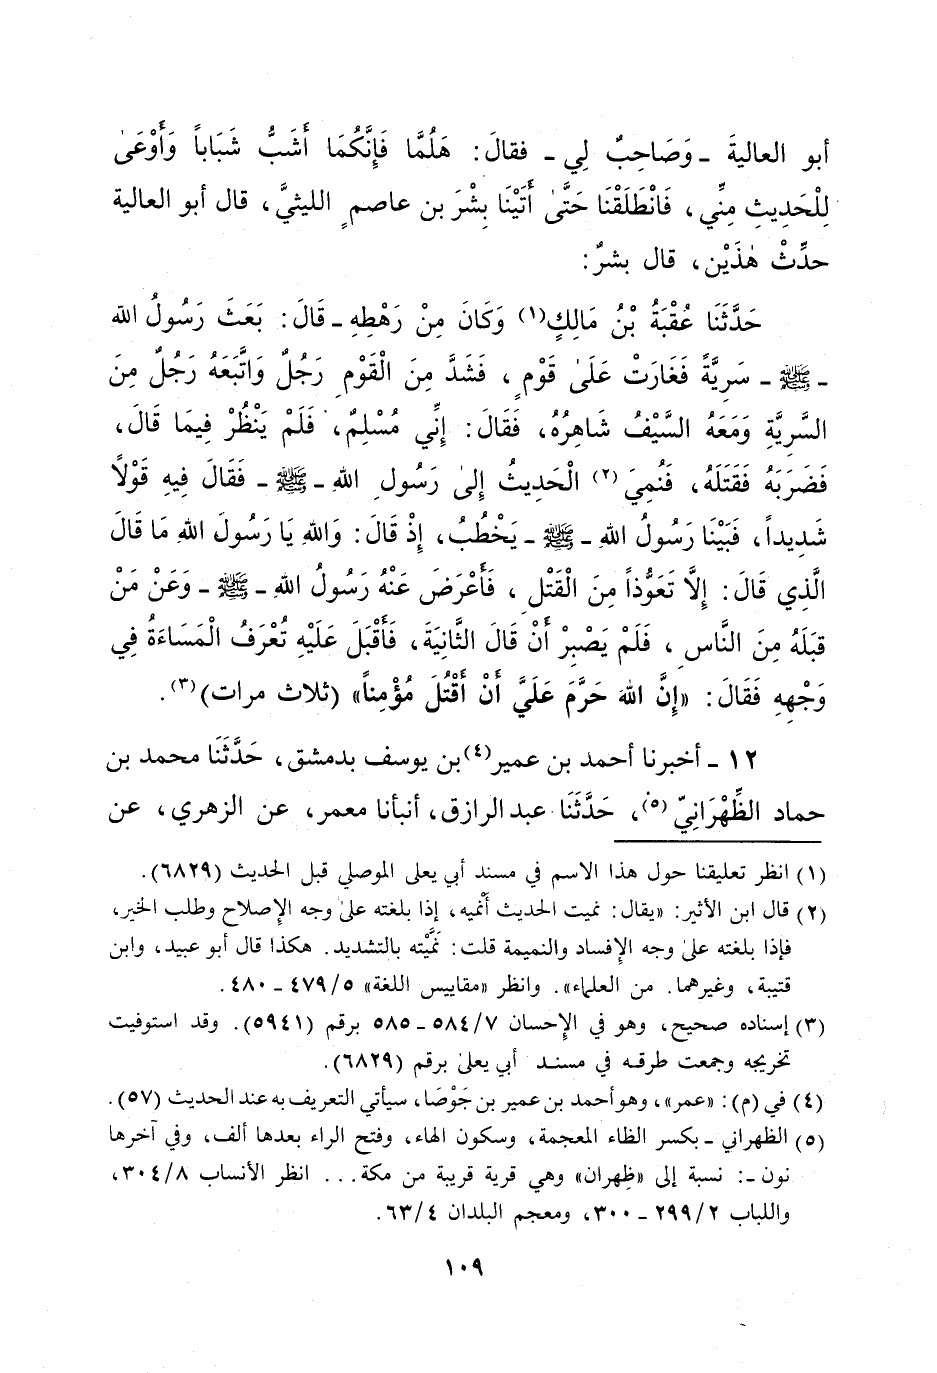 أبو العاليةَ ـ وَصَاحِبٌ لِي ـ فقالَ: هَلُمَّا فَإِنَّكُمَا أَشَبُّ شَبَاباً وَأَوْعَىٰ
لِلْحَدِيثِ مِنِّي، فَانْطَلَقْنَا حَتَّىٰ أَتَيْنَا بِشْرَ بن عاصمٍ الليثيَّ، قال أبو العالية
حدِّثْ هٰذَيْن، قال بشرٌ:
حَدَّثَنَا عُقْبَةُ بْنُ مَالِكٍ(١) وَكَانَ مِنْ رَهْطِهِ ـ قَالَ: بَعَثَ رَسُولُ الله
ـ ﷺ ـ سَرِيَّةً فَغَارَتْ عَلَىٰ قَوْمٍ، فَشَدَّ مِنَ الْقَوْمِ رَجُلٌ وَاتَّبَعَهُ رَجُلٌ مِنَ
السَّرِيَّةِ وَمَعَهُ السَّيْفُ شَاهِرُهُ، فَقَالَ: إِنِّي مُسْلِمٌ، فَلَمْ يَنْظُرْ فِيمَا قَالَ،
فَضَرَبَهُ فَقَتَلَهُ، فَنُمِيَ(٢) الْحَدِيثُ إِلىٰ رَسُولِ اللهِ ـ ﷺ ـ فَقَالَ فِيهِ قَوْلاً
شَدِيداً، فَبَيْنَا رَسُولُ اللهِ ـ ﷺ ـ يَخْطُبُ، إِذْ قَالَ: وَاللهِ يَا رَسُولَ اللهِ مَا قَالَ
الَّذِي قَالَ: إِلَّا تَعَوُّذاً مِنَ الْقَتْلِ، فَأَعْرَضَ عَنْهُ رَسُولُ اللهِ ـ ﷺ ـ وَعَنْ مَنْ
قِبَلَهُ مِنَ النَّاسِ، فَلَمْ يَصْبِرْ أَنْ قَالَ الثَّانِيَةَ، فَأَقْبَلَ عَلَيْهِ تُعْرَفُ الْمَسَاءَةُ فِي
وَجْهِهِ فَقَالَ: «إِنَّ اللهَ حَرَّمَ عَلَيَّ أَنْ أَقْتُلَ مُؤْمِناً» (ثلاث مرات)(٣).
١٢ ـ أخبرنا أحمد بن عمير(٤) بن يوسف بدمشق، حَدَّثَنَا محمد بن
حماد الظِّهْرَانِيّ(٥)، حَدَّثَنَا عبد الرازق، أنبأنا معمر، عن الزهري، عن
(١) انظر تعليقنا حول هذا الاسم في مسند أبي يعلى الموصلي قبل الحديث (٦٨٢٩).
(٢) قال ابن الأثير: «يقال: نميت الحديث أَنْميه، إذا بلغته علىٰ وجه الإصلاح وطلب الخير،
فإذا بلغته علىٰ وجه الإفساد والنميمة قلت: نَمَّيْته بالتشديد. هكذا قال أبو عبيد، وابن
قتيبة، وغيرهما. من العلماء». وانظر «مقاييس اللغة» ٤٧٩/٥ ـ ٤٨٠.
(٣) إسناده صحيح، وهو في الإحسان ٥٨٤/٧ ـ ٥٨٥ برقم (٥٩٤١). وقد استوفيت
تخريجه وجمعت طرقه في مسند أبي يعلىٰ برقم (٦٨٢٩).
(٤) في (م): «عمر»، وهو أحمد بن عمير بن جَوْصَا، سيأتي التعريف به عند الحديث (٥٧).
(٥) الظهراني ـ بكسر الظاء المعجمة، وسكون الهاء، وفتح الراء بعدها ألف، وفي آخرها
نون ـ: نسبة إلى «ظِهران» وهي قرية قريبة من مكة... انظر الأنساب ٣٠٤/٨،
واللباب ٢٩٩/٢ ـ ٣٠٠، ومعجم البلدان ٦٣/٤.
١٠٩